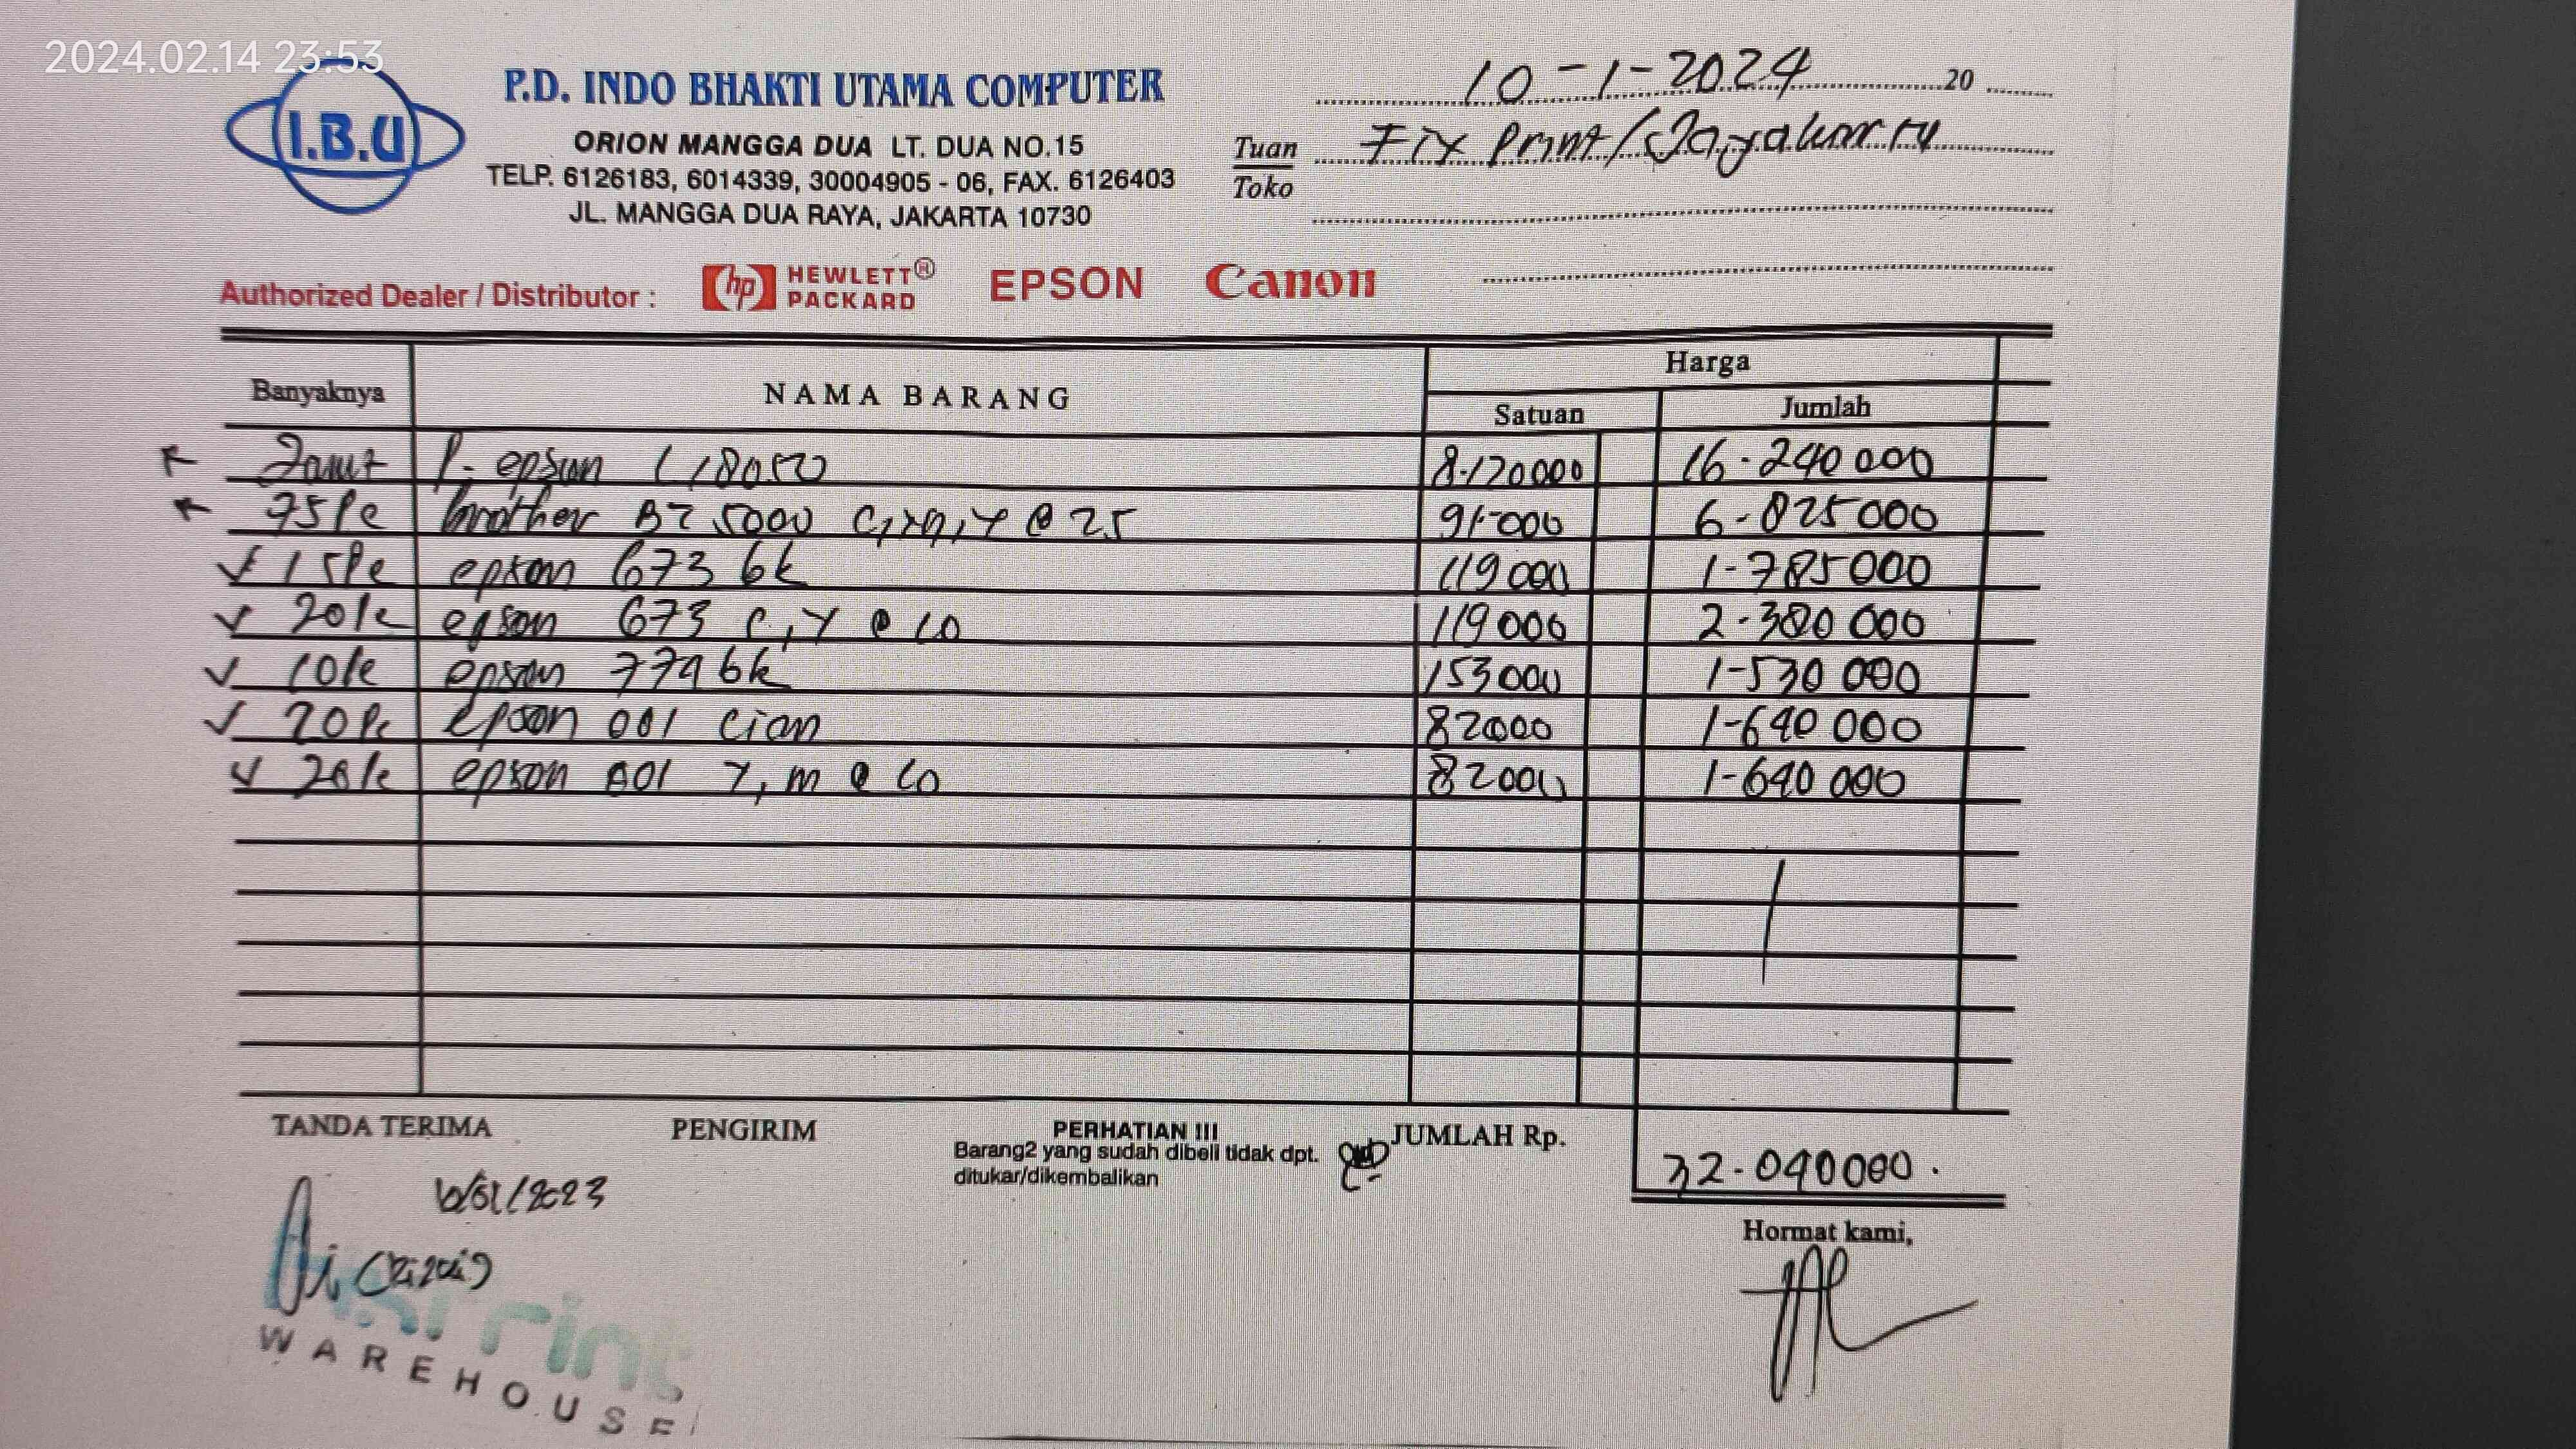 2024.02.14 23:53
I.B.U
P.D. INDO BHAKTI UTAMA COMPUTER
ORION MANGGA DUA LT. DUA NO.15
TELP. 6126183, 6014339, 30004905 - 06, FAX. 6126403
JL. MANGGA DUA RAYA, JAKARTA 10730
10-1-2024 20
Tuan Fix Print/Jayakarta
Toko
Authorized Dealer / Distributor : hp HEWLETT® PACKARD EPSON Canon
Banyaknya NAMA BARANG Harga
Satuan Jumlah
2 P. epson L18050 8-120000 16-240000
75 Pc brother BT 5000 C,m,Y @ 25 91-000 6-825000
15 Pc epson 673 bk 119000 1-785000
20 Pc epson 673 C,Y @ 10 119000 2-380 000
10 Pc epson 774 bk 153000 1-530 000
20 Pc epson 001 cian 82000 1-640 000
20 Pc epson 001 Y, m @ 10 82000 1-640 000
TANDA TERIMA PENGIRIM PERHATIAN !!! JUMLAH Rp.
Barang2 yang sudah dibeli tidak dpt.
ditukar/dikembalikan
32-040000.
Hormat kami,
WAREHOUSE